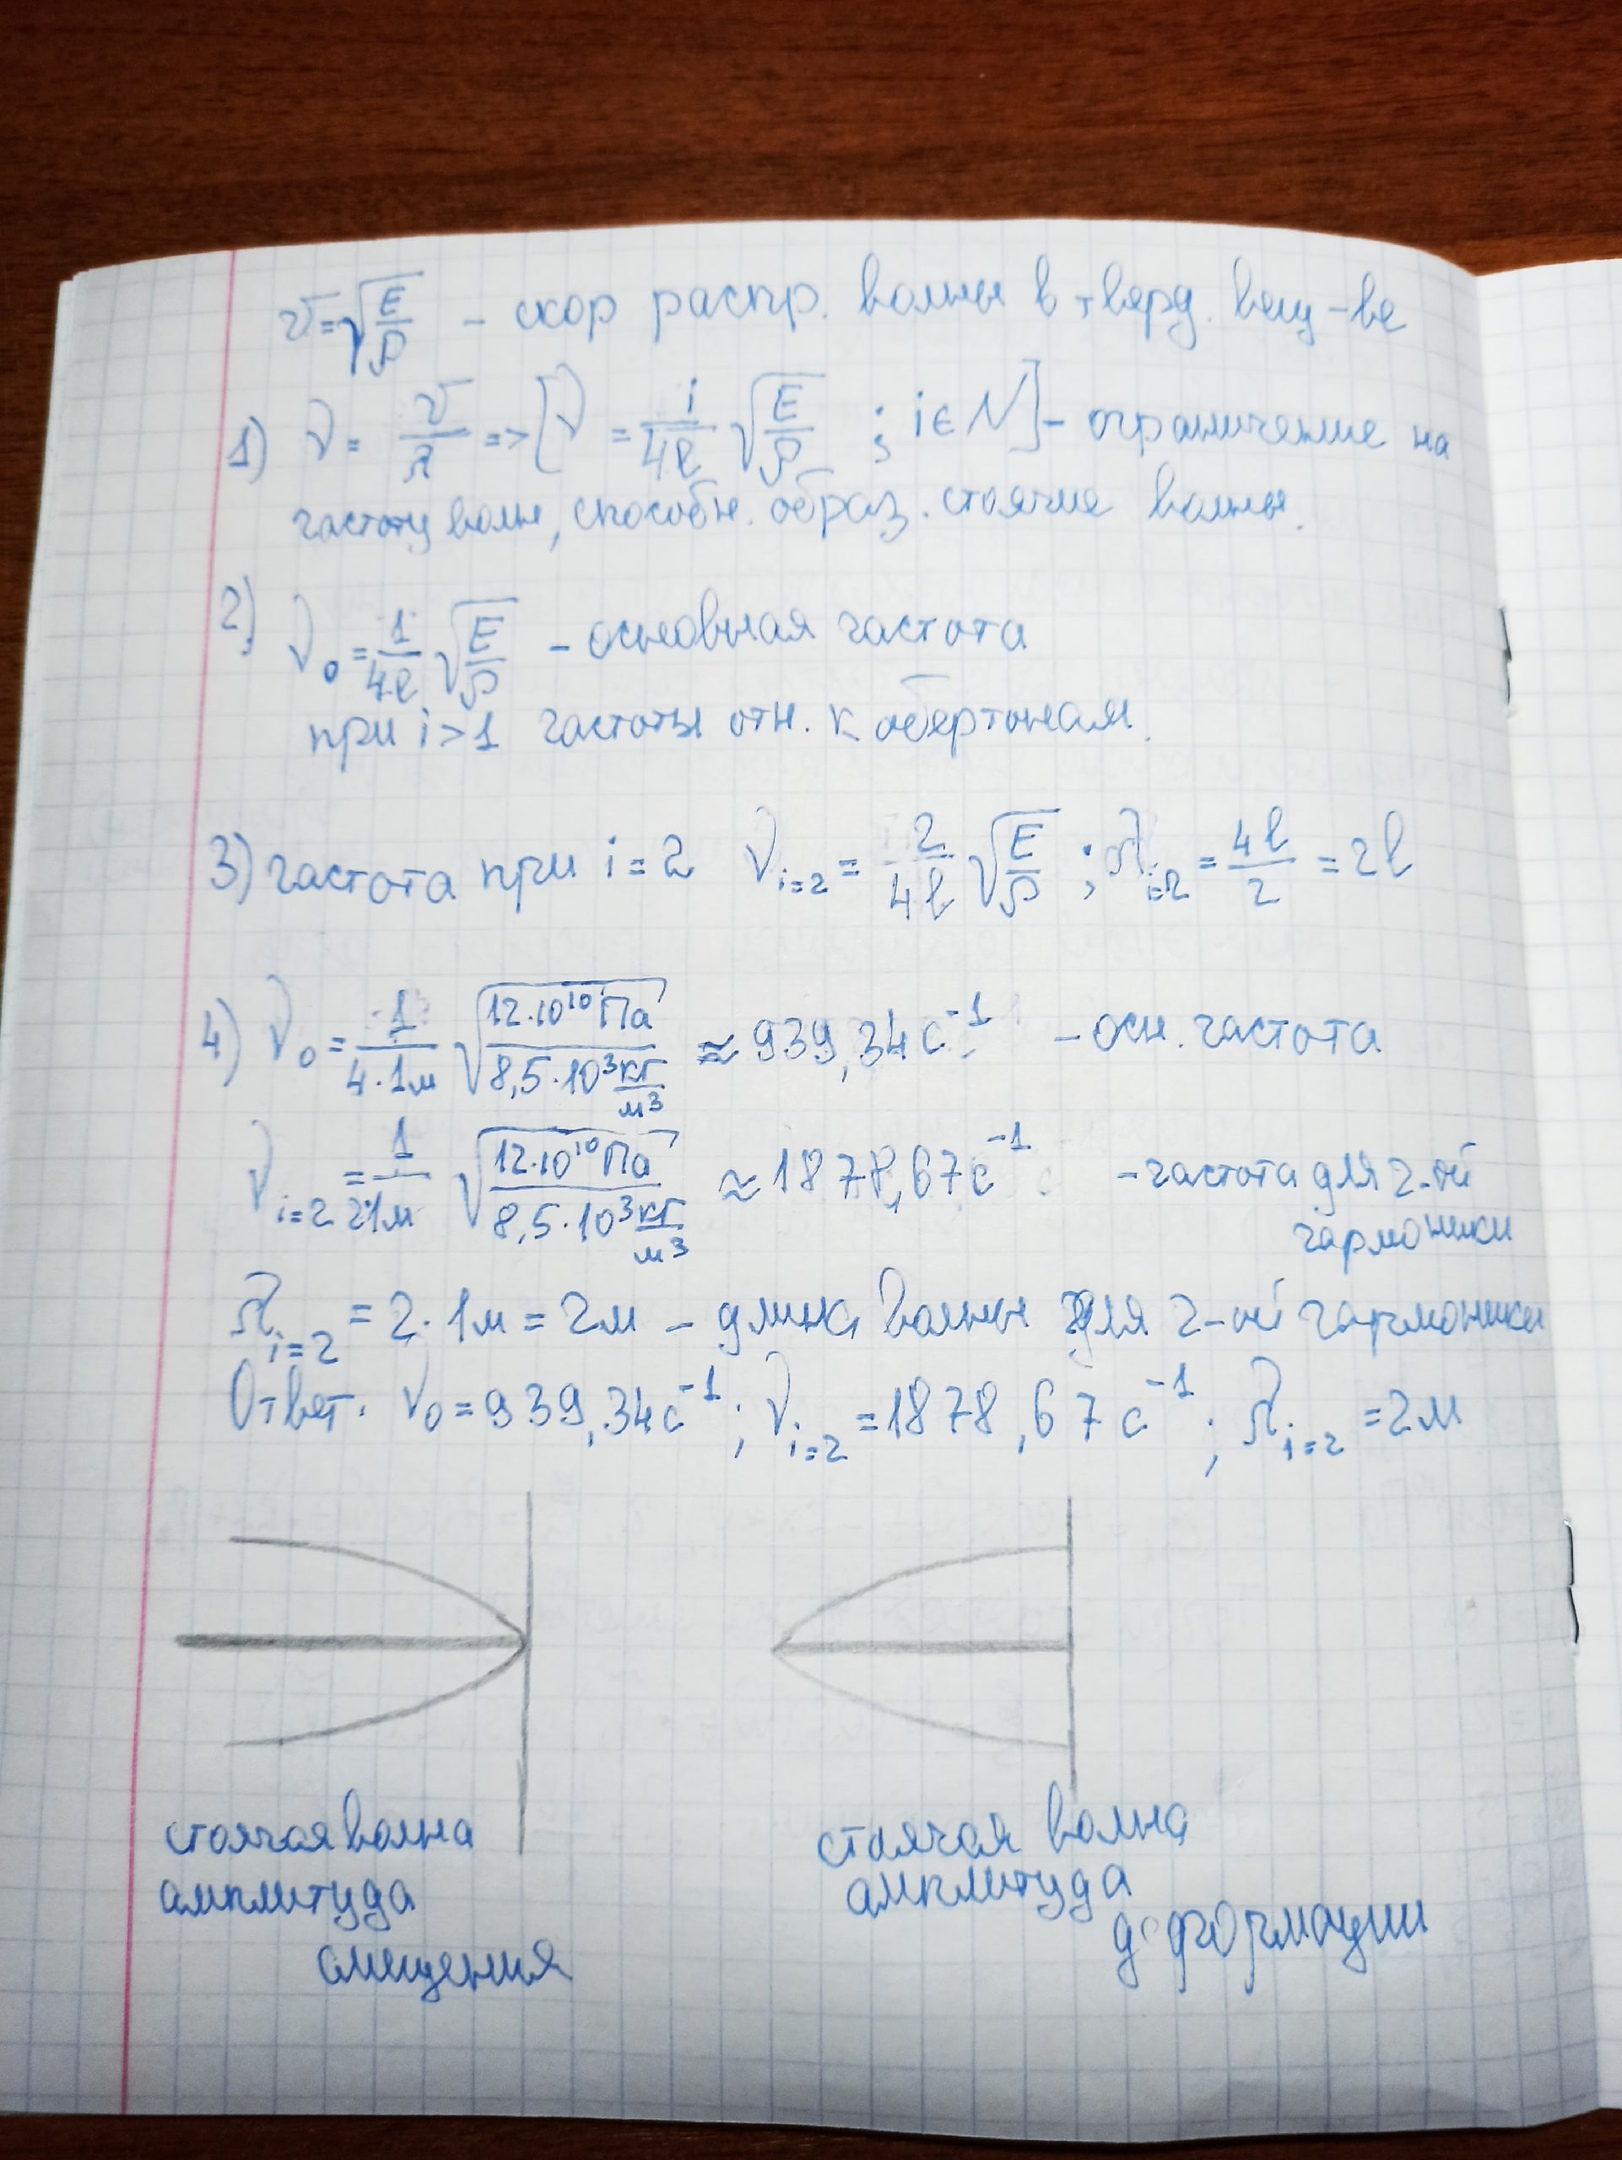 v=√(E/ρ) – скор распр. волны в тверд. вещ-ве
1) ν = v/λ => [ν = i/4l √(E/ρ) ; i∈N] – ограничение на
частоту волн, способн. образ. стоячие волны.
2) ν₀ = 1/4l √(E/ρ) – основная частота
при i>1 частоты отн. к обертонам.
3) частота при i=2 ν i=2 = 2/4l √(E/ρ) ; λ i=2 = 4l/2 = 2l
4) ν₀ = 1/(4·1м) √(12·10¹⁰Па / 8,5·10³ кг/м³) ≈ 939,34 с⁻¹ – осн. частота
ν i=2 = 1/(2·1м) √(12·10¹⁰Па / 8,5·10³ кг/м³) ≈ 1878,67 с⁻¹ – частота для 2-ой
гармоники
λ i=2 = 2·1м = 2м – длина волны для 2-ой гармоники
Ответ: ν₀ = 939,34 с⁻¹ ; ν i=2 = 1878,67 с⁻¹ ; λ i=2 = 2м
стоячая волна
амплитуда
смещения
стоячая волна
амплитуда
деформации